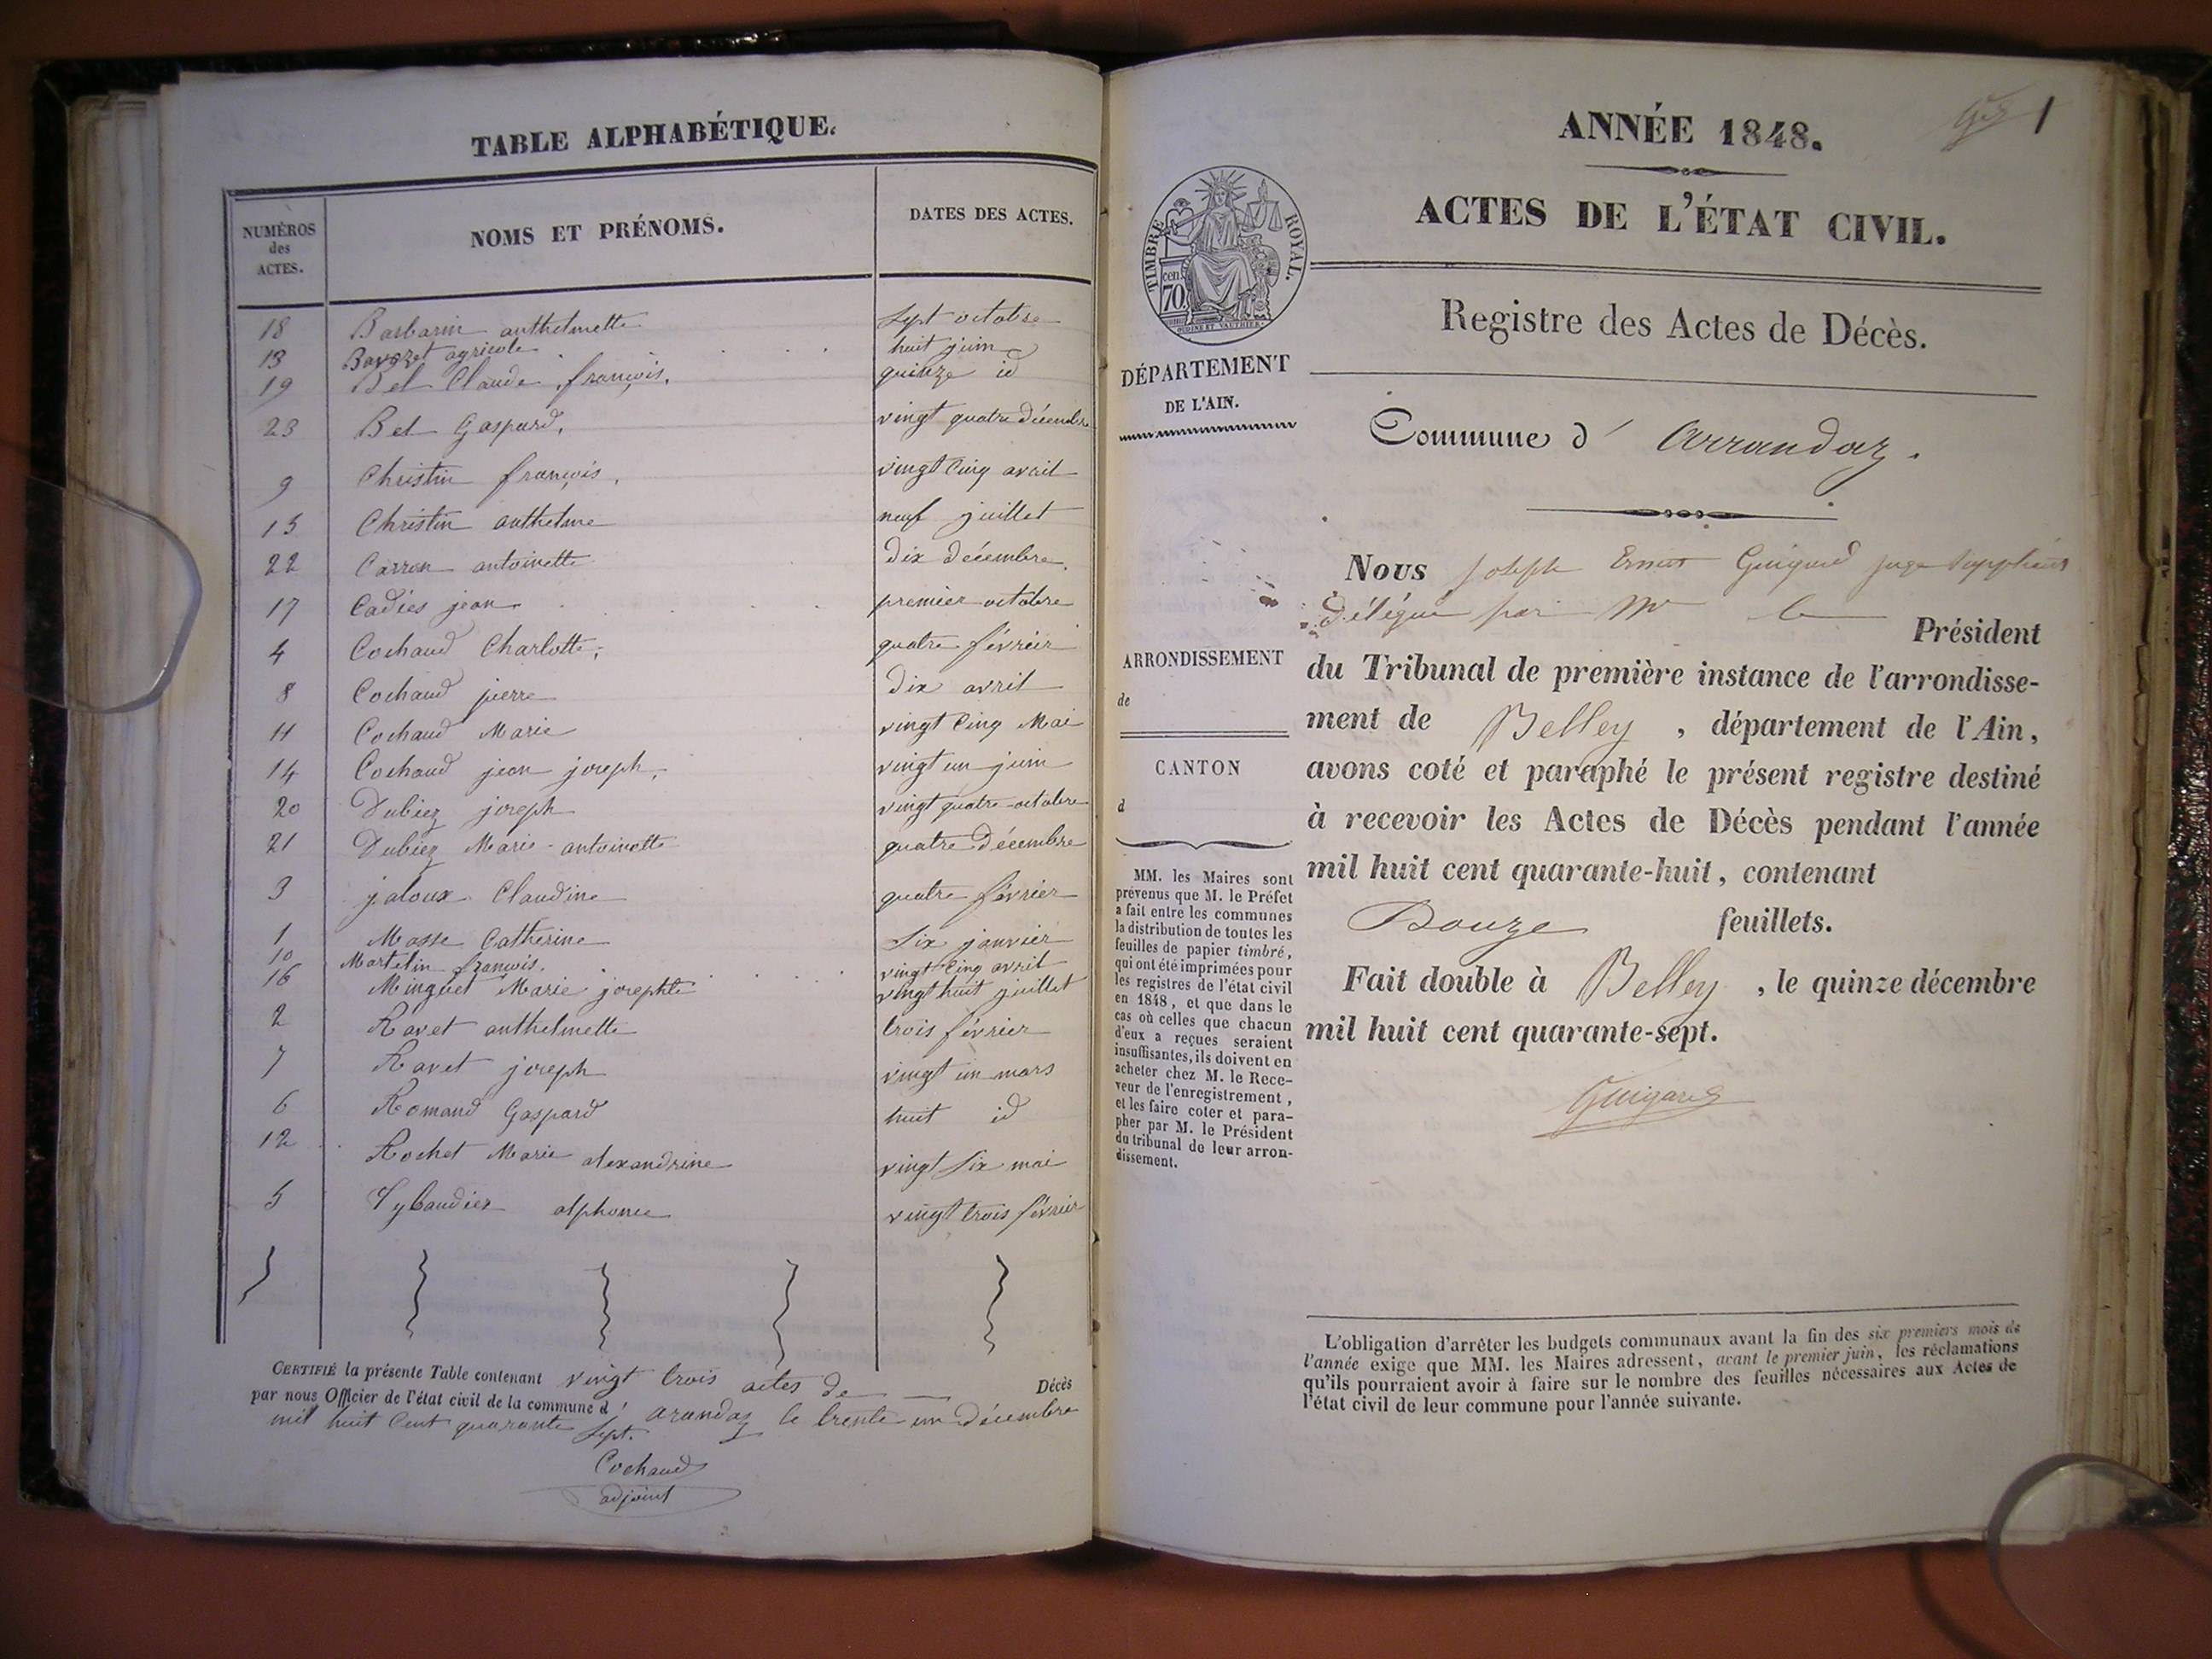 TABLE ALPHABÉTIQUE.
NUMÉROS des ACTES. NOMS ET PRÉNOMS. DATES DES ACTES.
18 Barbarin anthelmette sept octobre
13 Bavozet agricole huit juin
19 Bel Claude françois. quinze id
23 Bel Gaspard. vingt quatre décembre
9 Christin françois. vingt cinq avril
15 Christin anthelme neuf juillet
22 Carron antoinette dix décembre.
17 Cadies jean premier octobre
4 Cochaud Charlotte. quatre février
8 Cochaud pierre dix avril
11 Cochaud Marie vingt cinq Mai
14 Cochaud jean joseph. vingt un juin
20 Dubiez joseph vingt quatre octobre
21 Dubiez Marie-antoinette quatre Décembre
3 jaloux Claudine quatre février
1 Masse Catherine six janvier
10 Martelin françois. vingt cinq avril
16 Minguet Marie josephte vingt huit juillet
2 Ravet anthelmette trois février
7 Ravet joseph vingt un mars
6 Romand Gaspard huit id
12 Rochet Marie alexandrine vingt six mai
5 Tybaudier alphonse vingt trois février
CERTIFIÉ la présente Table contenant vingt trois actes de Décès
par nous Officier de l'état civil de la commune d' arandaz le trente un Décembre
mil huit Cent quarante sept.
Cochaud
adjoint
1
ANNÉE 1848.
ACTES DE L'ÉTAT CIVIL.
TIMBRE ROYAL.
70 cen.
Registre des Actes de Décès.
DÉPARTEMENT
DE L'AIN.
Commune d' Arrandaz.
Nous Joseph Ernest Guigard juge suppléant
Délégué par Mr le Président
du Tribunal de première instance de l'arrondisse-
ment de Belley, département de l'Ain,
avons coté et paraphé le présent registre destiné
à recevoir les Actes de Décès pendant l'année
mil huit cent quarante-huit, contenant
Douze feuillets.
Fait double à Belley, le quinze décembre
mil huit cent quarante-sept.
Guigard
ARRONDISSEMENT
de
CANTON
d
MM. les Maires sont
prévenus que M. le Préfet
a fait entre les communes
la distribution de toutes les
feuilles de papier timbré,
qui ont été imprimées pour
les registres de l'état civil
en 1848, et que dans le
cas où celles que chacun
d'eux a reçues seraient
insuffisantes, ils doivent en
acheter chez M. le Rece-
veur de l'enregistrement,
et les faire coter et para-
pher par M. le Président
du tribunal de leur arron-
dissement.
L'obligation d'arrêter les budgets communaux avant la fin des six premiers mois de
l'année exige que MM. les Maires adressent, avant le premier juin, les réclamations
qu'ils pourraient avoir à faire sur le nombre des feuilles nécessaires aux Actes de
l'état civil de leur commune pour l'année suivante.